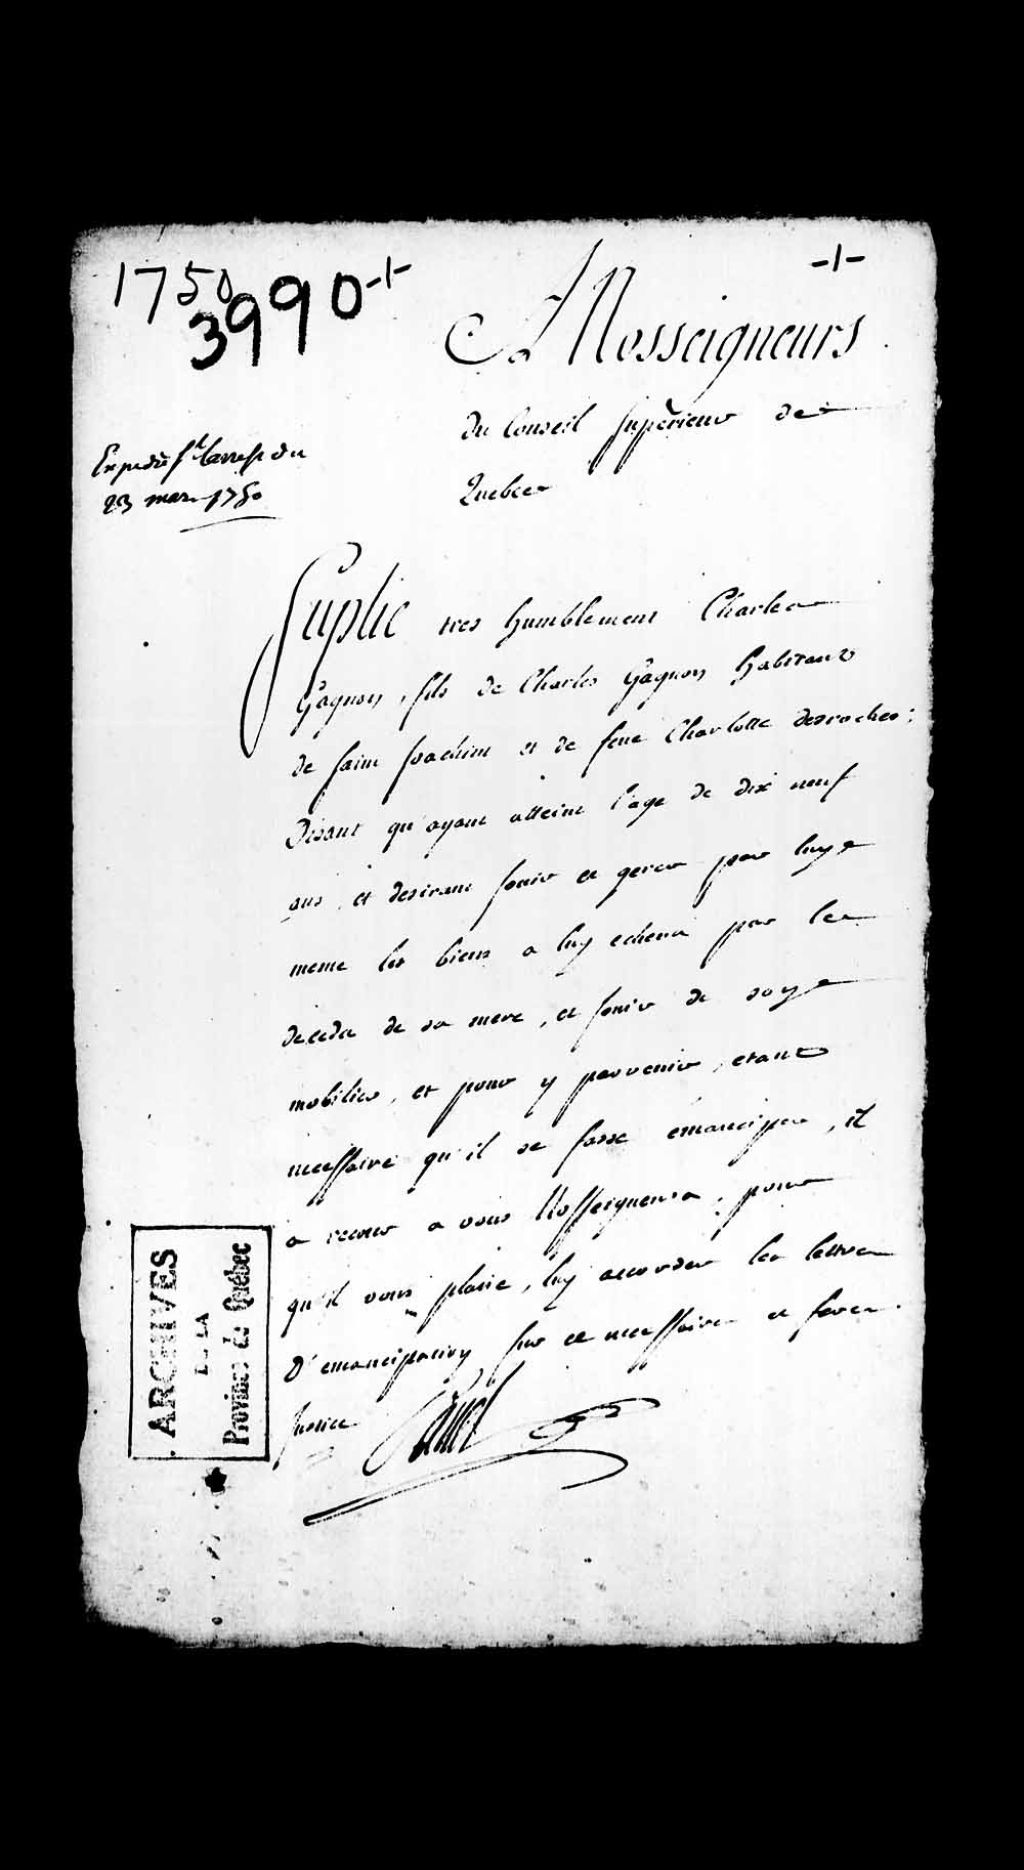 1750
3990 -1-
-1-
A Nosseigneurs
du Conseil superieur de
Quebec
Expedié st. larrest du
23 mars 1750
Suplie tres humblement Charles
Gagnon, fils de Charles Gagnon habitant
de saint Joachim et de feue Charlotte desroches:
Disant qu'ayant atteint l'age de dix neuf
ans, et desirant jouir et gerer par luy
meme les biens a luy echeus par le
decedx de sa mere, et jouir de soy
mobilier, et pour y parvenir, etant
necessaire qu'il se fasse emanciper, il
a recours a vous Nosseigneurs, pour
qu'il vous plaise, luy accorder les lettres
D'emancipation sur ce necessaires et ferez
Justice Panet
ARCHIVES
DE LA
Province de Québec